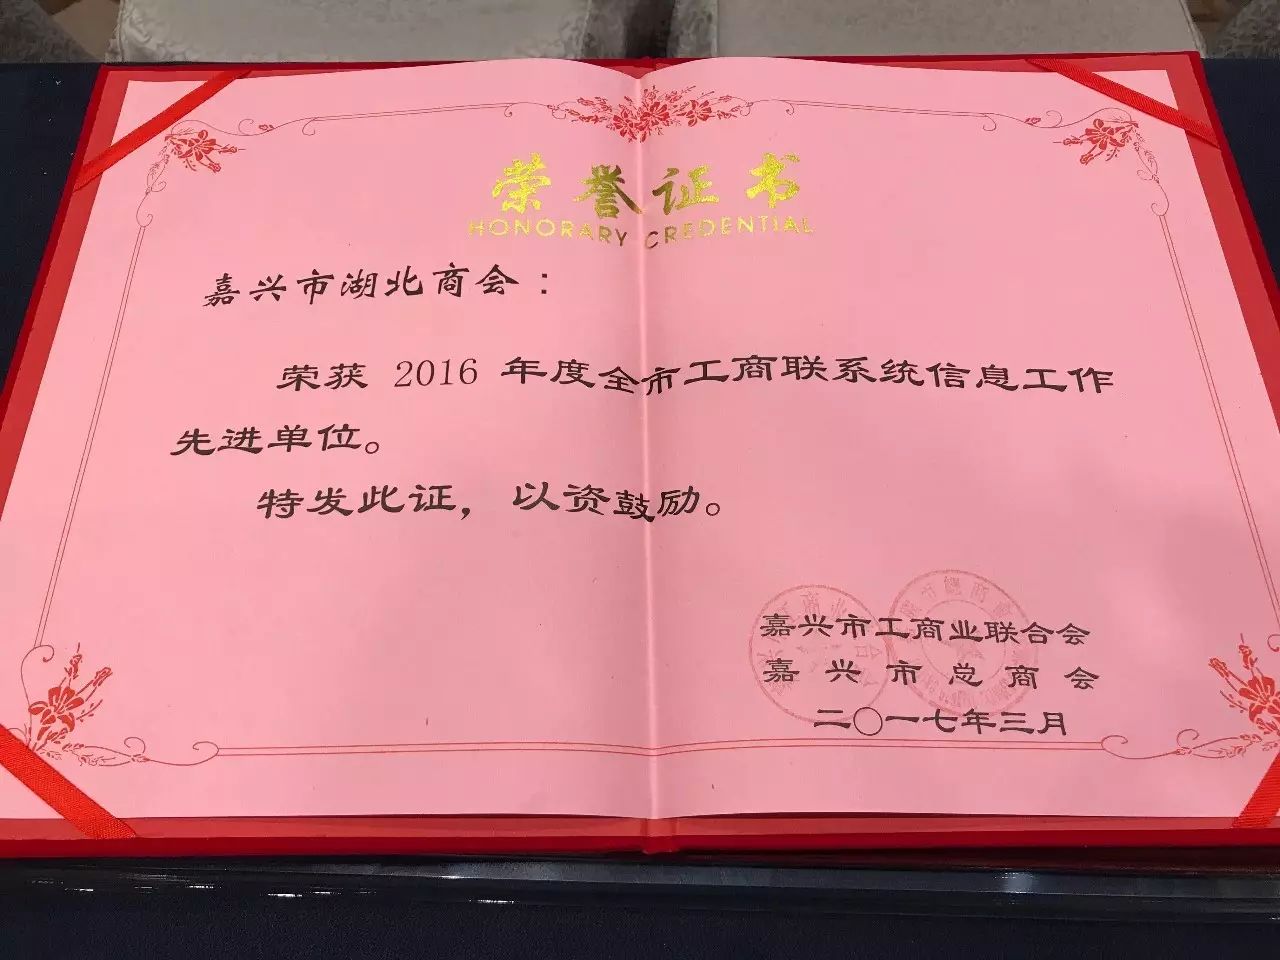 荣誉证书
HONORARY CREDENTIAL
嘉兴市湖北商会：
荣获 2016 年度全市工商联系统信息工作
先进单位。
特发此证，以资鼓励。
嘉兴市工商业联合会
嘉兴市总商会
二〇一七年三月